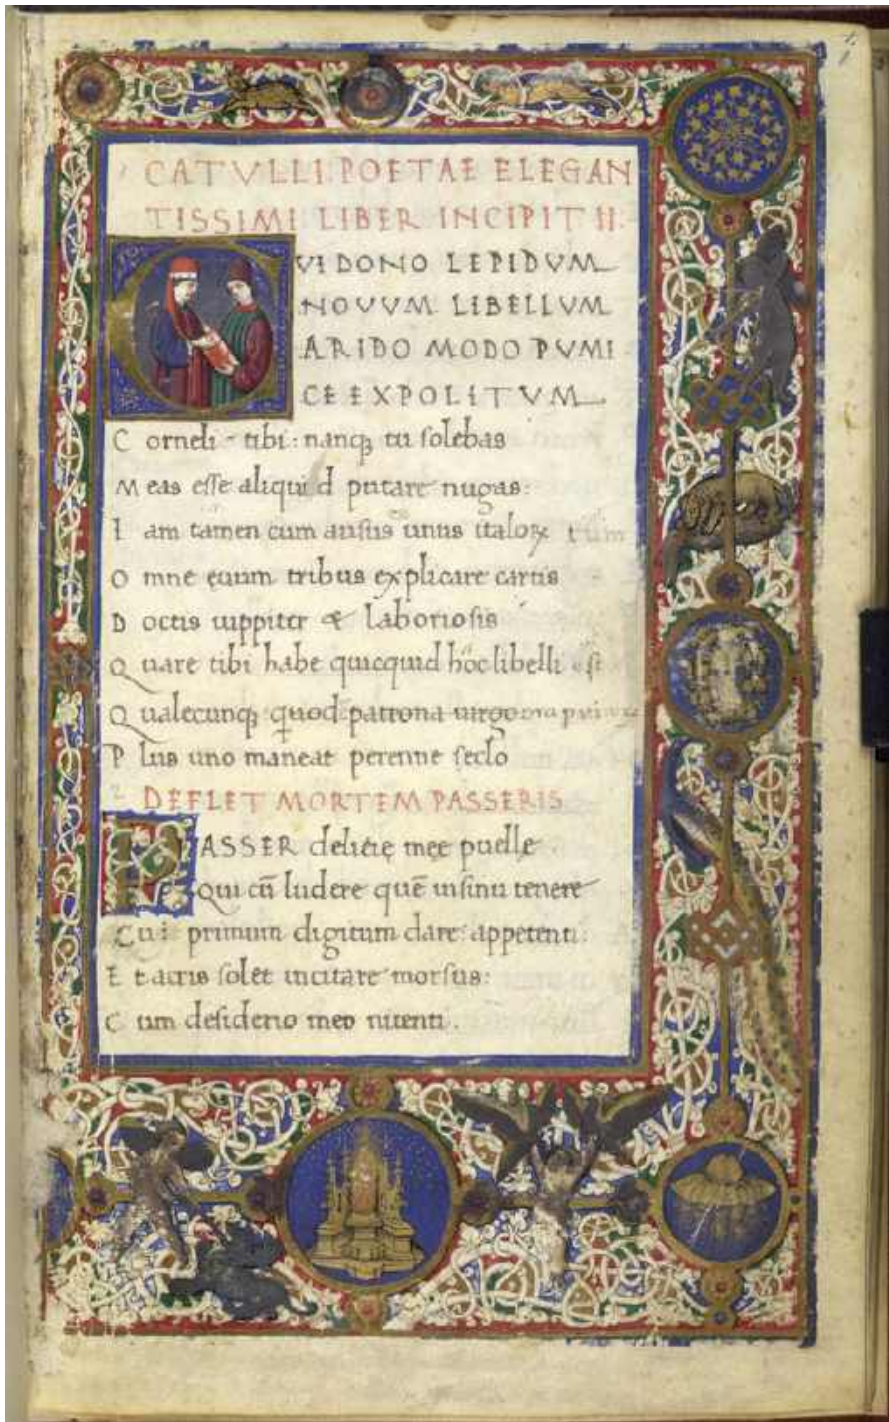 CATVLLI. POETAE ELEGAN
TISSIMI LIBER INCIPIT II:
VI DONO LEPIDVM
NOVVM LIBELLVM
ARIDO MODO PVMI
CE EXPOLITVM
C orneli tibi: nanqꝫ tu solebas
M eas esse aliquid putare nugas:
I am tamen cum ausus unus italoꝝ tum
O mne ęuum tribus explicare cartis
D octis iuppiter & laboriosis
Q uare tibi habe quicquid hoc libelli est
Q ualecunqꝫ quod patrona uirgo
P lus uno maneat perenne seclo
DEFLET MORTEM PASSERIS
PASSER delicię męę puelle
Qui cū ludere quē insinu tenere
C ui primum digitum dare appetenti:
E t acris solet incitare morsus:
C um desiderio meo nitenti.